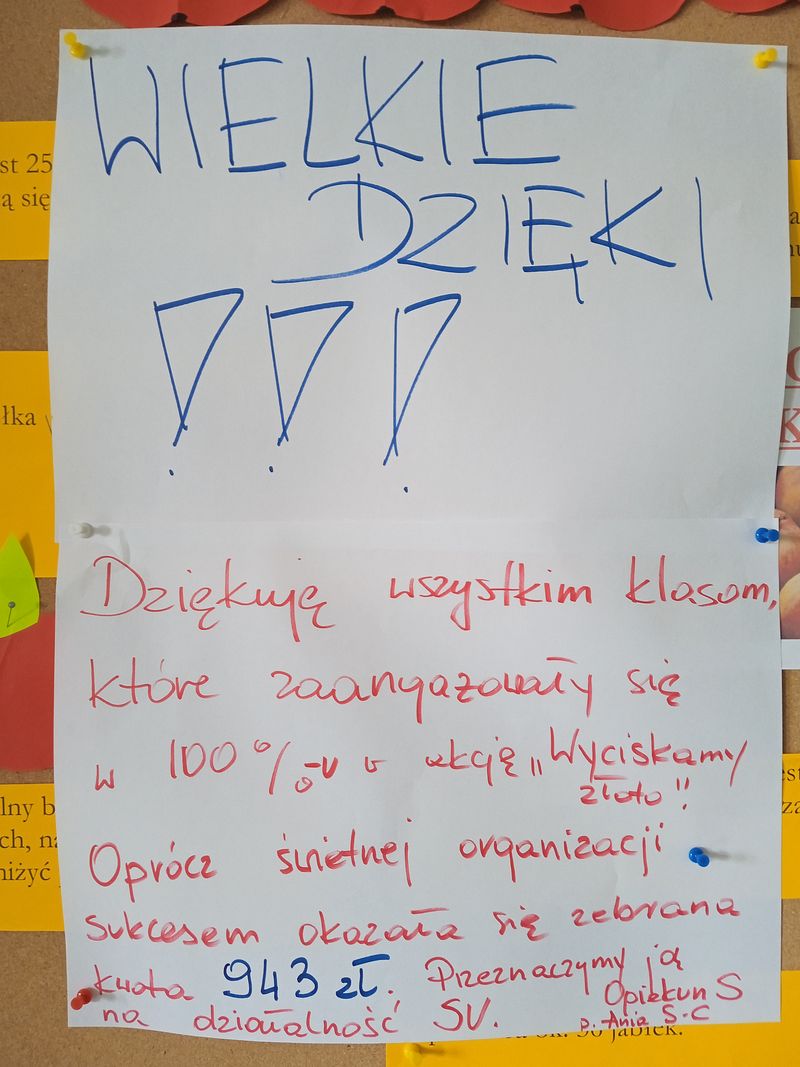 WIELKIE
DZIĘKI
! ! !
Dziękuję wszystkim klasom,
które zaangażowały się
w 100%-o v akcję „Wyciskamy
złoto"
Oprócz świetnej organizacji
sukcesem okazała się zebrana
kwota 943 zł. Przeznaczymy ją
na działalność SU.
Opiekun S
p. Ania S-C
st 25
ą się
łka
lny b
ch, na
niżyć
ok. 30 jabłek.